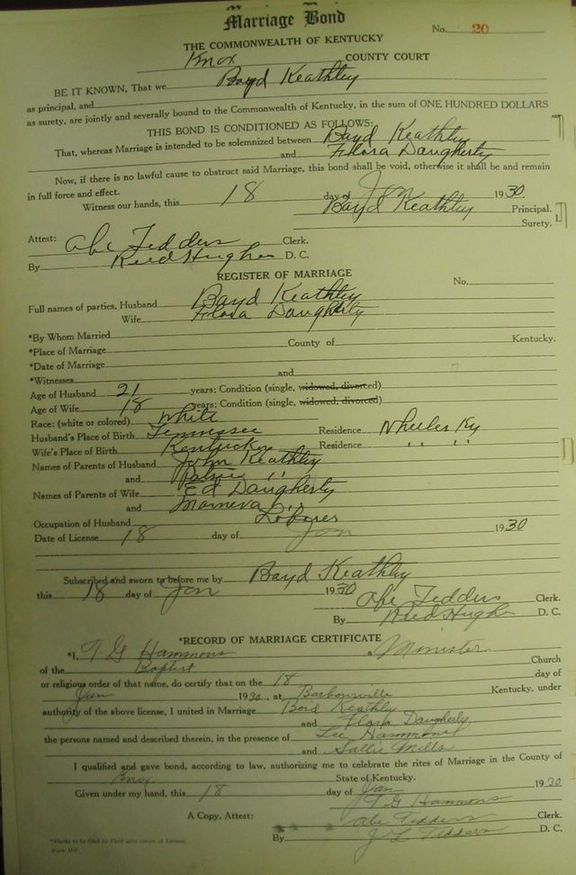 Marriage Bond
No. 20
THE COMMONWEALTH OF KENTUCKY
Knox COUNTY COURT
BE IT KNOWN, That we Boyd Keathley
as principal, and
as surety, are jointly and severally bound to the Commonwealth of Kentucky, in the sum of ONE HUNDRED DOLLARS
THIS BOND IS CONDITIONED AS FOLLOWS:
That, whereas Marriage is intended to be solemnized between Boyd Keathley
and Flora Daugherty
Now, if there is no lawful cause to obstruct said Marriage, this bond shall be void, otherwise it shall be and remain
in full force and effect.
Witness our hands, this 18 day of Jan 1930.
Boyd Keathley Principal.
Surety.
Attest: Abe Tedders Clerk.
By Reed Hughes D. C.
REGISTER OF MARRIAGE
No.
Full names of parties, Husband Boyd Keathley
Wife Flora Daugherty
*By Whom Married
*Place of Marriage County of Kentucky.
*Date of Marriage
*Witnesses and
Age of Husband 21 years; Condition (single, widowed, divorced)
Age of Wife 18 years; Condition (single, widowed, divorced)
Race: (white or colored) White
Husband's Place of Birth Tennessee Residence Wheeler Ky
Wife's Place of Birth Kentucky Residence " "
Names of Parents of Husband John Keathley
and "
Names of Parents of Wife Ed Daugherty
and "
Occupation of Husband Laborer
Date of License 18 day of Jan 1930
Subscribed and sworn to before me by Boyd Keathley
this 18 day of Jan 1930
Abe Tedders Clerk.
By Reed Hughes D. C.
*RECORD OF MARRIAGE CERTIFICATE
*I, T G Hammons a Minister
of the Baptist Church
or religious order of that name, do certify that on the 18 day of
Jan 1930, at Barbourville Kentucky, under
authority of the above license, I united in Marriage Boid Keathley
and Flora Daugherty
the persons named and described therein, in the presence of Lee Hammons
and Sallie Mills
I qualified and gave bond, according to law, authorizing me to celebrate the rites of Marriage in the County of
Knox State of Kentucky.
Given under my hand, this 18 day of Jan 1930
T G Hammons
A Copy, Attest: Abe Tedders Clerk.
By J L Tedders D. C.